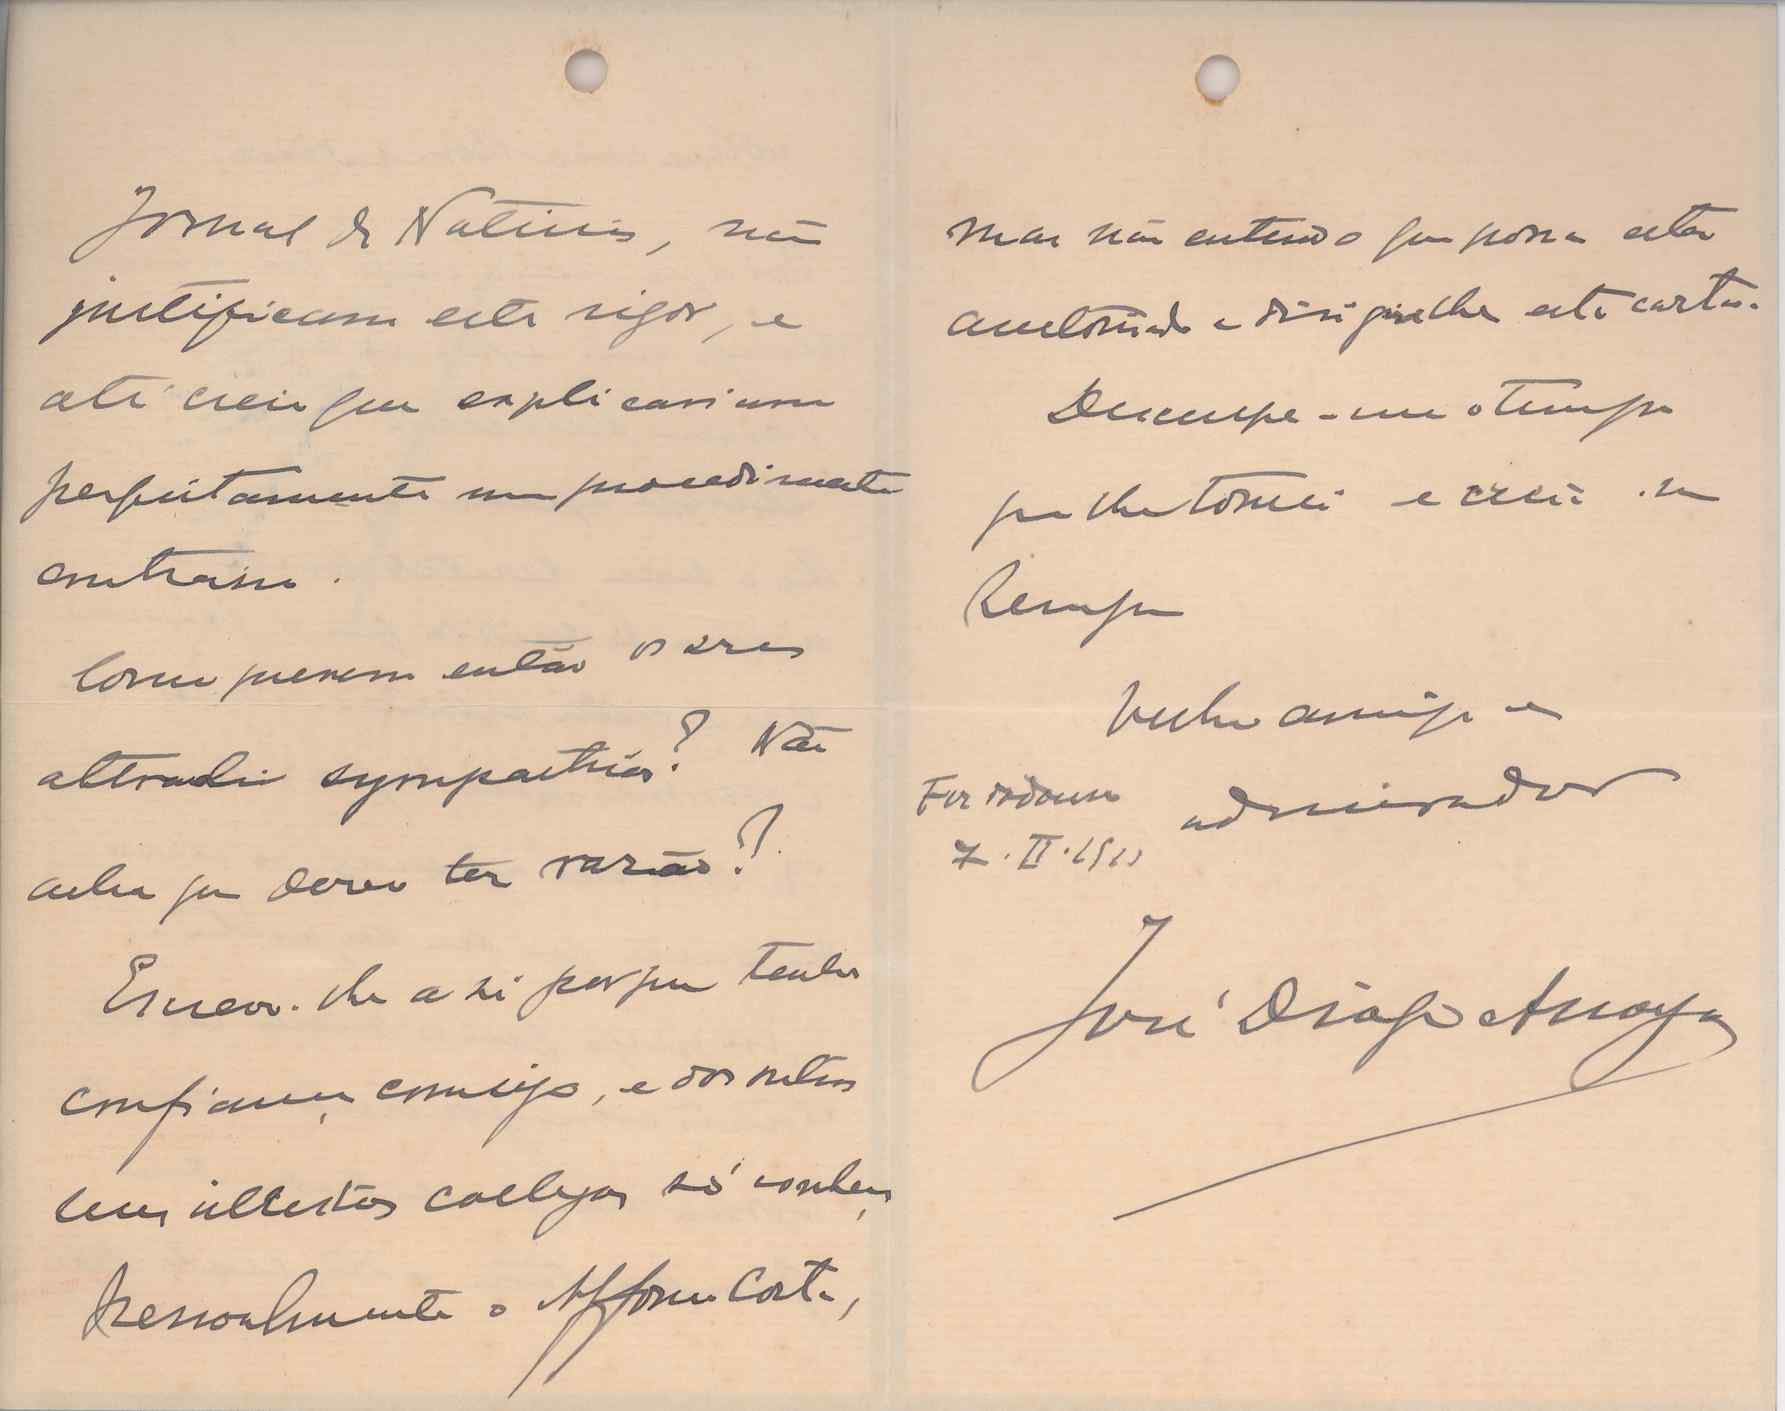 Jornal de Noticias, não
justificam este rigor, e
até creio que explicariam
perfeitamente um procedimento
contrario.
Como querem então os srs
attrahir sympathias? Não
acha que devo ter razão?
Escrevo-lhe a si porque tenho
confiança comsigo, e dos outros
seus illustres collegas só conheço
pessoalmente o Affonso Costa,
mas não entendo que possa estar
auctorisado a dirigir-lhe esta carta.
Desculpe-me o tempo
que lhe tomei e creia-me
Sempre
Velho amigo e
admirador
7.II.1911
José Diogo Arroyo